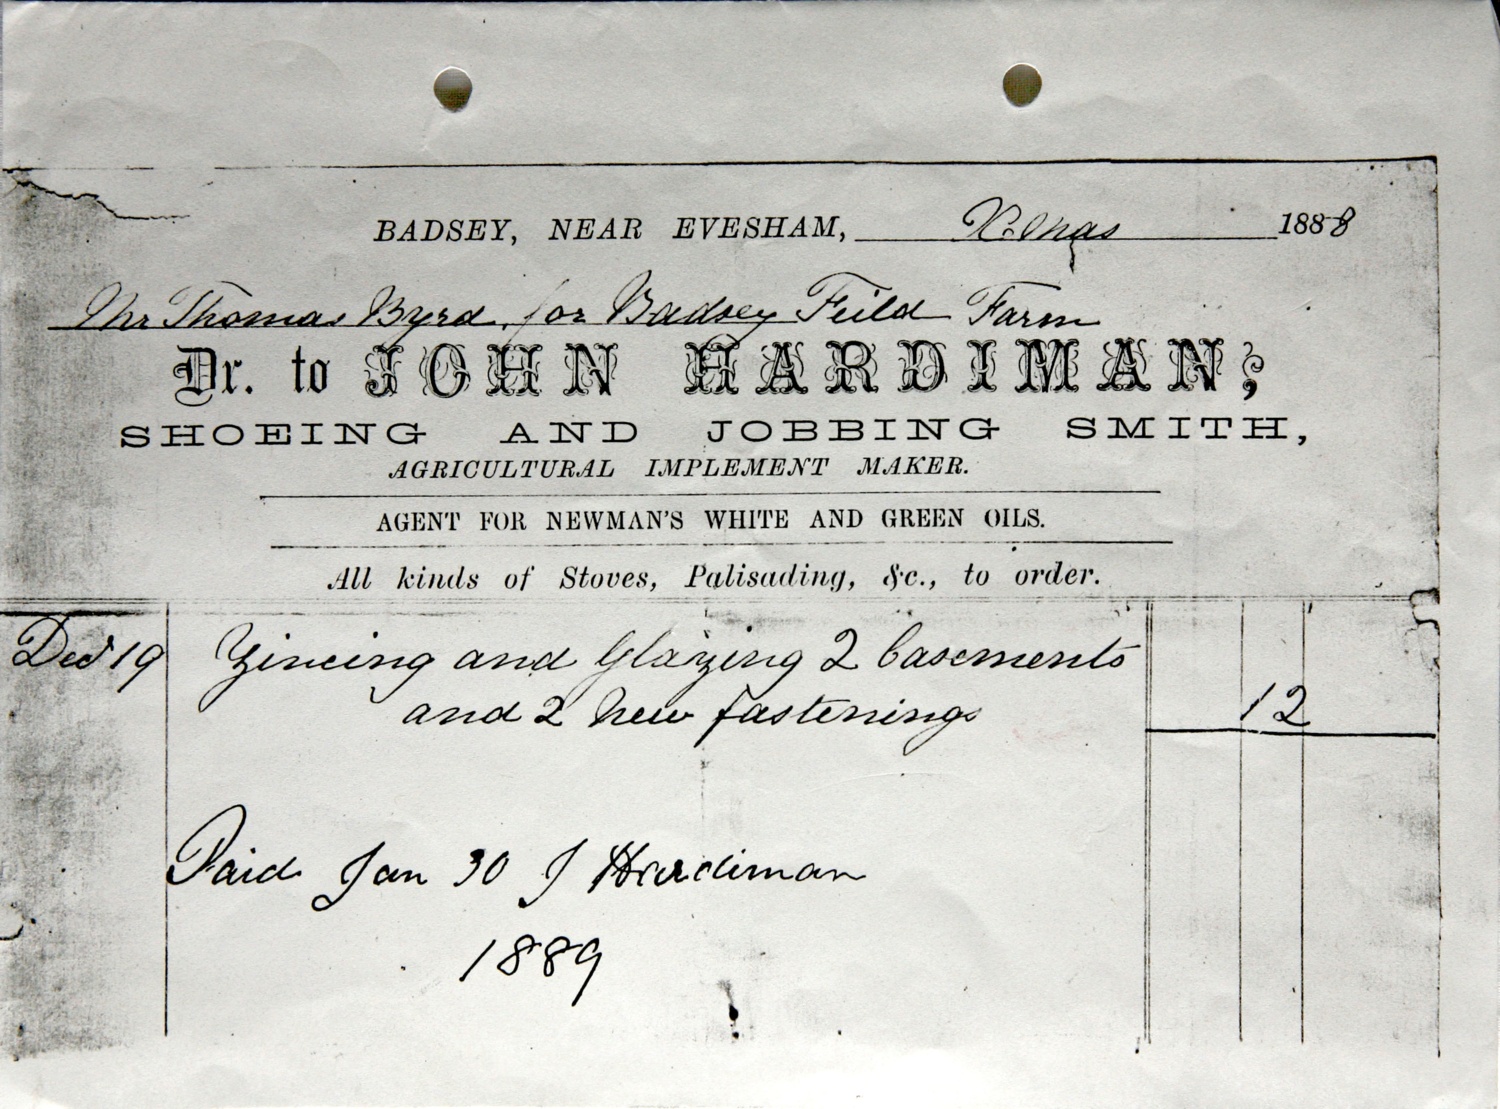 BADSEY, NEAR EVESHAM, Xmas 1888
Mr Thomas Byrd for Badsey Feild Farm
Dr. to JOHN HARDIMAN,
SHOEING AND JOBBING SMITH,
AGRICULTURAL IMPLEMENT MAKER.
AGENT FOR NEWMAN'S WHITE AND GREEN OILS.
All kinds of Stoves, Palisading, &c., to order.
Decr 19 Zincing and Glazing 2 basements
and 2 new fastenings 12
Paid Jan 30 J Hardiman
1889